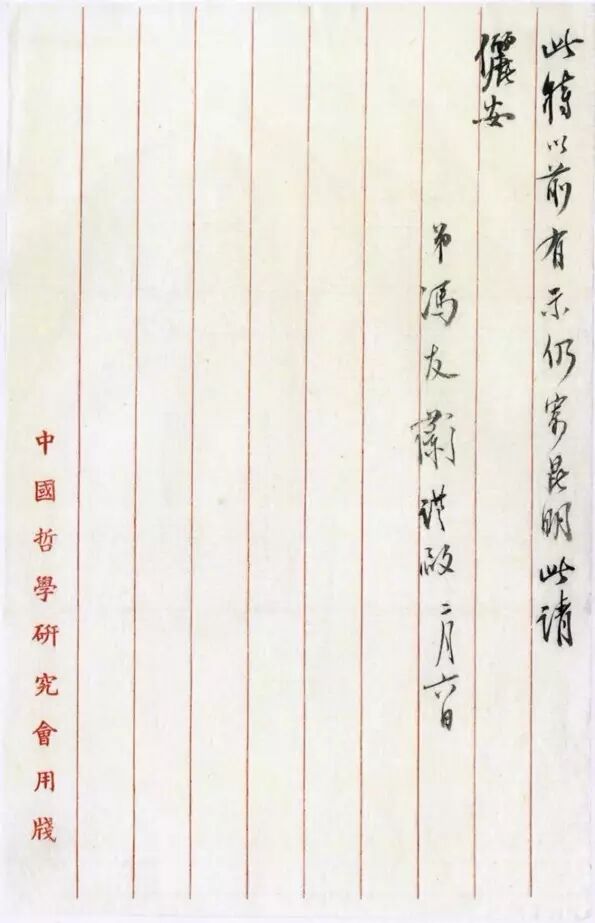 此特以前有示仍寄昆明此請
儷安
弟馮友蘭謹啟 二月六日
中國哲學研究會用牋